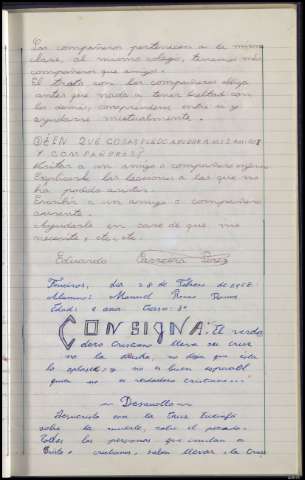 Los compañeros pertenecen a la misma
clase, al mismo colegio, tenemos más
compañeros que amigos.
El trato con los compañeros obliga
antes que nada a tener lealtad con
los demás, comprenderse entre si y
ayudarse mutuamente.
¿EN QUÉ COSAS PUEDO AYUDAR A MIS AMIGOS
Y COMPAÑEROS?
Visitar a un amigo o compañero enfermo
Explicarle las lecciones a las que no
ha podido asistir.
Escribir a un amigo o compañero
ausente.
Ayudarle en caso de que me
necesite, etc, etc.
Eduardo
Troncoso, día 28 de Febrero de
Alumno: Manuel
Edad: 8 anos Curso: 3º
CONSIGNA: "El verda
dero Cristiano lleva su cruz
no la
la aplaste, y no es buen español
quien no es verdadero cristiano..."
~ Desarrollo ~
Jesucristo con la Cruz triunfó
sobre la muerte, sobre el pecado.
Todas las personas que imitan a
Cristo, cristianos, saben llevar la Cruz